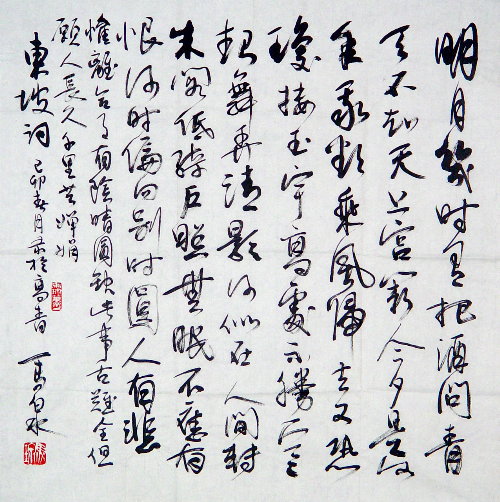 明月幾時有把酒問青
天不知天上宮闕今夕是何
年我欲乘風歸去又恐
瓊樓玉宇高處不勝寒
起舞弄清影何似在人間轉
朱閣低綺戶照無眠不應有
恨何時偏向別時圓人有悲
懽離合月有陰晴圓缺此事古難全但
願人長久千里共嬋娟
東坡詞 己卯春月於高青